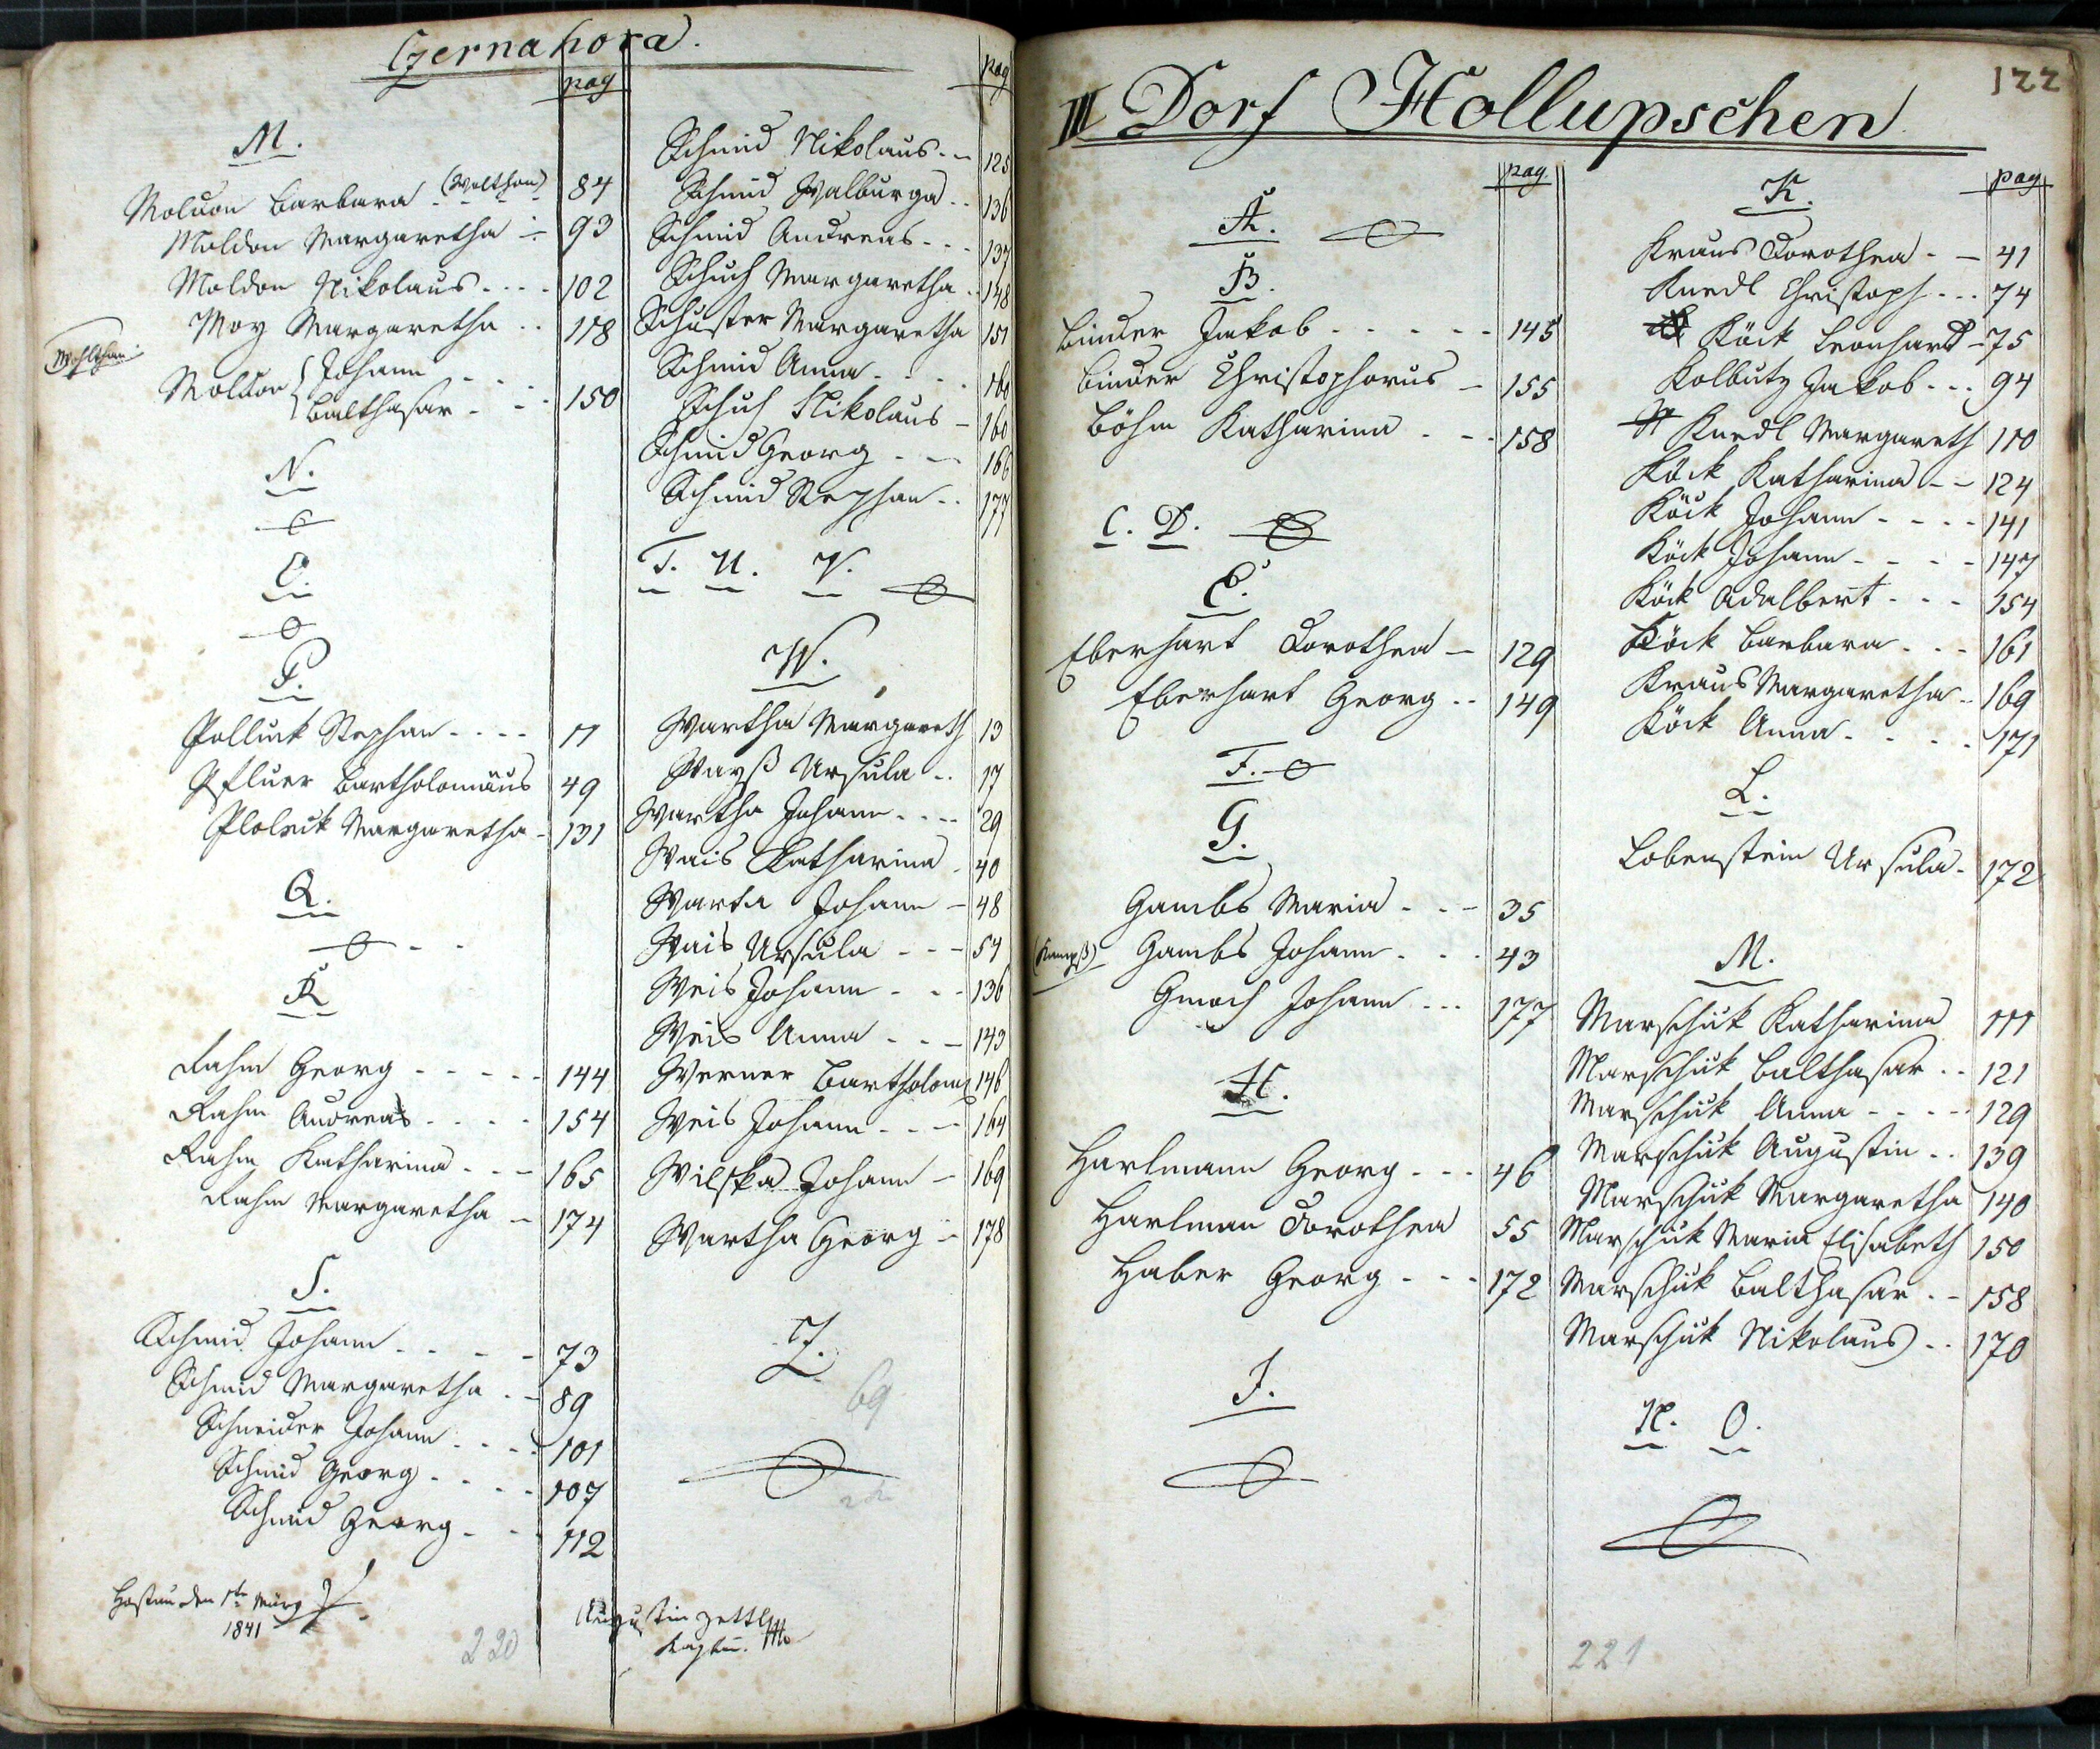 Czernahora.
pag
M.
Moldon Barbara (Wolthon) 84
Moldon Margaretha 93
Moldon Nikolaus 102
Moy Margaretha 118
Moldon Johann
Balthasar 150
N.
O.
P.
Polluck Stephan 11
Pfluer Bartholomäus 49
Margaretha 131
Q.
R
Rahm Georg 144
Rahm Andreas 154
Rahm Katharina 165
Rahm Margaretha 174
S.
Schmid Johann 73
Schmid Margaretha 89
Schneider Johann 101
Schmid Georg 107
Schmid Georg 112
Hostau den 1te März
1841
220
pag
Schmid Nikolaus 125
Schmid Walburga 136
Schmid Andreas 137
Schuh Margaretha 148
Schuster Margaretha 151
Schmid Anna 160
Schuh Nikolaus 160
Schmid Georg 166
Schmid Stephan 177
T. U. V.
W.
Wartha Margareth 13
Wayß Ursula 17
Wartha Johann 29
Wais Katharina 40
Warta Johann 48
Wais Ursula 54
Weis Johann 136
Weis Anna 143
Werner Bartholom 146
Weis Johann 164
Wilska Johann 169
Wartha Georg 178
Z.
69
Augustin Zettl
Kaplan.
122
III Dorf Hollupschen
pag.
A.
B.
Binder Jakob 145
Binder Christophorus 155
Böhm Katharina 158
C. D.
E.
Eberhart Dorothea 129
Eberhart Georg 149
F.
G.
Gambs Maria 35
Gambs Johann 43
Gmach Johann 177
H.
Harlmann Georg 46
Harlman Dorothea 55
Haber Georg 172
I.
pag
K.
Kraus Dorothea 41
Knedl Christoph 74
Köck Leonhard 75
Kolbutz Jakob 94
Knedl Margareth 110
Köck Katharina 124
Köck Johann 141
Köck Johann 147
Köck Adalbert 154
Köck Barbara 161
Kraus Margaretha 169
Köck Anna 171
L.
Lobenstein Ursula 172
M.
Marschik Katharina 111
Marschik Balthasar 121
Marschik Anna 129
Marschik Augustin 139
Marschik Margaretha 140
Marschik Maria Elisabeth 150
Marschik Balthasar 158
Marschik Nikolaus 170
N. O.
221